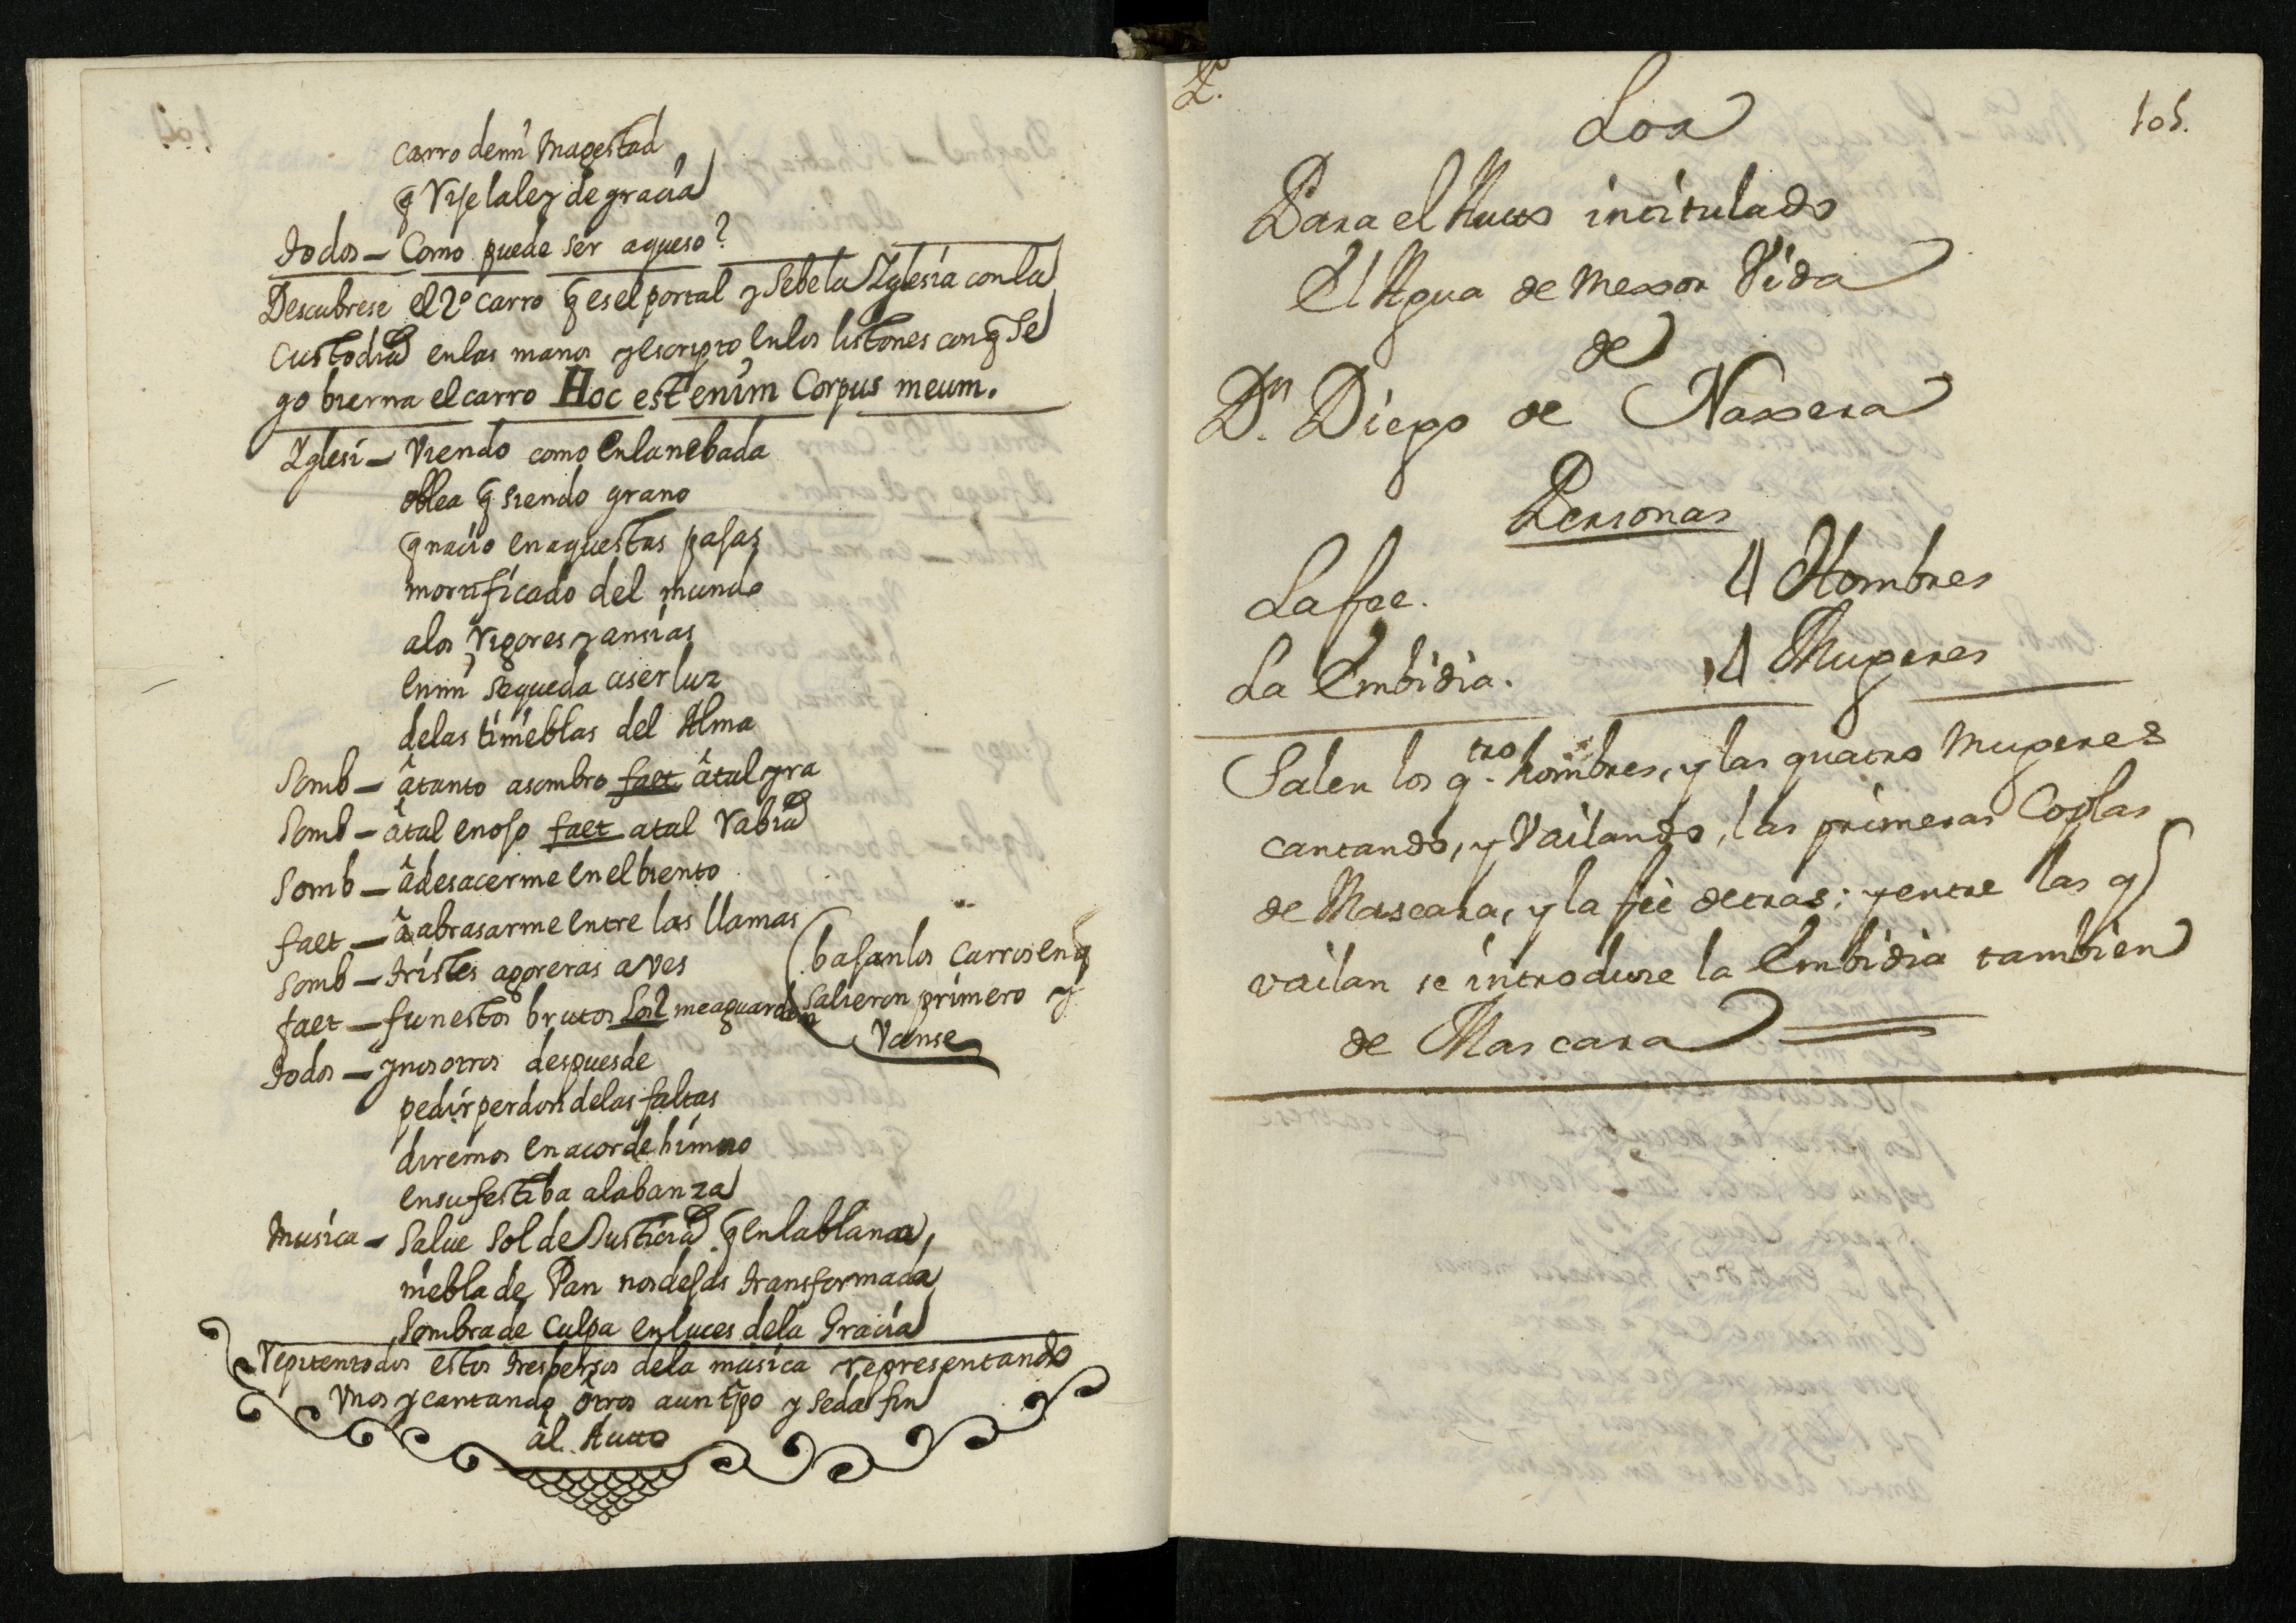 carro demi Magestad
q̃ Rije la ley de gracia
todos — Como puede ser aqueso?
Descubrese el 2º carro q̃ es el portal y sebe la Iglesia con la
Custodia en las manos y escripto en los listones con q̃ se
gobierna el carro Hoc est enim Corpus meum.
Iglesi — Viendo como en la nebada
oblea q̃ siendo grano
q̃ nacio en aquestas pajas
mortificado del mundo
a los rigores y ansias
en mi se queda a ser luz
de las tinieblas del Alma
Somb — â tanto asombro faet â tal yra
Somb — â tal enojo faet a tal rabia
Somb — â desacerme en el biento
faet — â abrasarme entre las llamas
Somb — tristes agoreras aves
faet — funestos brutos los 2 me aguarden
(bajan los carros en q̃
salieron primero y
Vanse
todos — y nosotros despues de
pedir perdon de las faltas
diremos en acorde himno
en su festiba alabanza
Musica — Salve Sol de Justicia q̃ en la blanca
niebla de Pan nos dejas transformada
Sombra de Culpa en luces de la Gracia
Repiten todos estos tres bersos de la musica representando
Vnos y cantando ôtros a un tp̃o y se da fin
âl Auto
105.
Loa
Para el Auto intitulado
El Agua de Mexor Vida
de
Dn. Diego de Naxera
Personas
La fee.
4 Hombres
La Embidia.
4 Mugeres
Salen los q.tro hombres, y las quatro Mugeres
cantando, y Vailando, las primeras Coplas
de Mascara, y la fee detras; y entre las q
vailan se introduze la Embidia tambien
de Mascara